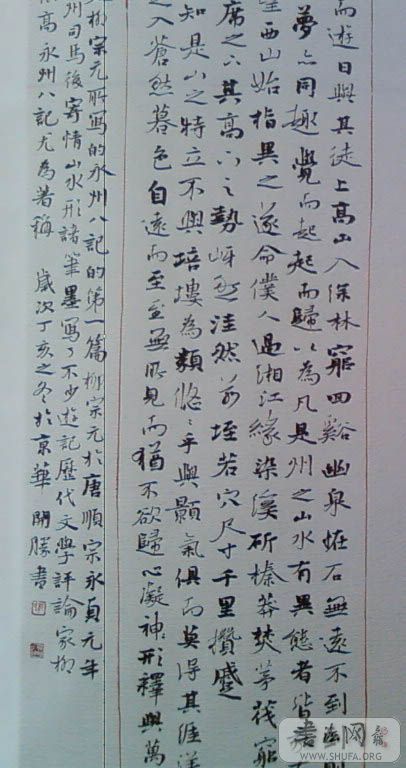 而遊日與其徒上高山入深林窮四谿幽泉恠石無遠不到
夢亦同趣覺而起起而歸以為凡是州之山水有異態者皆
望西山始指異之遂命僕人過湘江緣染溪斫榛莽焚茅茷窮
席之下其高下之勢岈然洼然若垤若穴尺寸千里攢蹙
知是山之特立不與培塿為類悠悠乎與顥氣俱而莫得其涯洋
之入蒼然暮色自遠而至至無所見而猶不欲歸心凝神形釋與萬
柳宗元所寫的永州八記的第一篇柳宗元於唐順宗永貞元年
州司馬後寄情山水形諸筆墨寫了不少遊記歷代文學評論家柳
高永州八記尤為著稱 歲次丁亥之冬於京華 開勝書
书法网
SHUFA.ORG